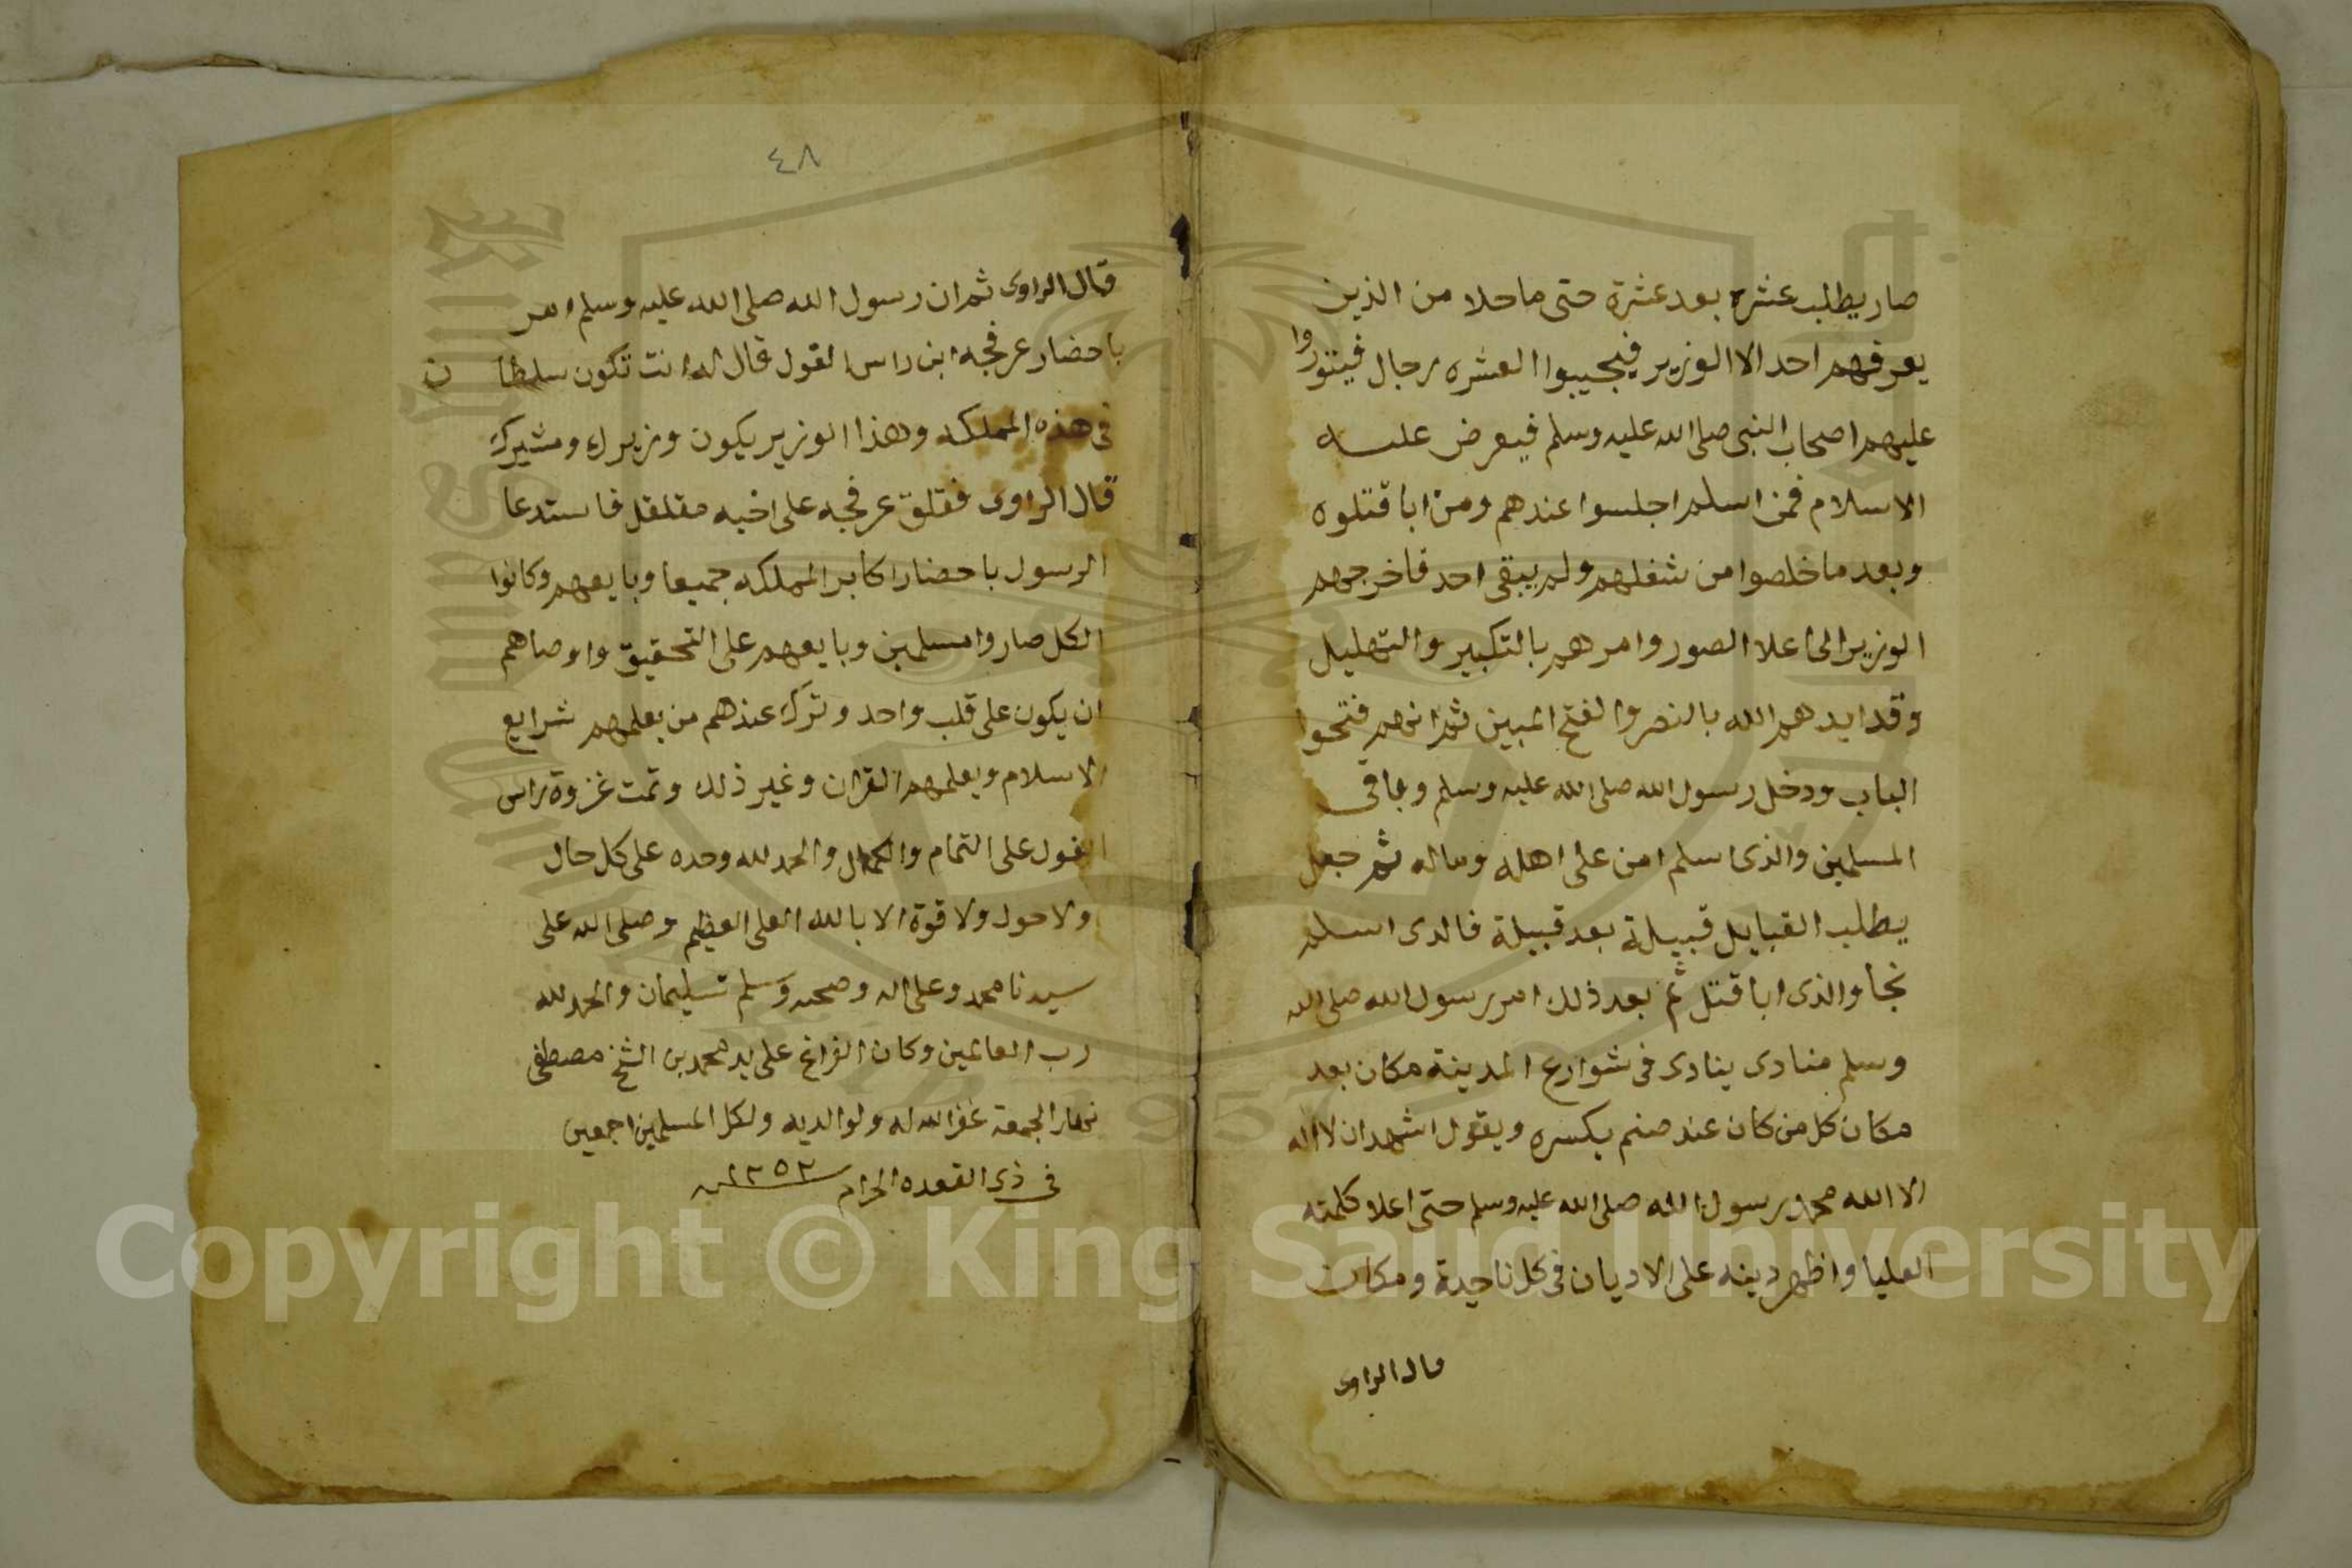 صار يطلب عشره بعد عشرة حتى ما خلا من الذين
يعرفهم احد الا الوزير فيجيبوا العشره رجال فيتوروا
عليهم اصحاب النبى صلى الله عليه وسلم فيعرض عليه
الاسلام فمن اسلم اجلسوا عندهم ومن ابا قتلوه
وبعد ما خلصوا من شغلهم ولم يبقى احد فاخرجهم
الوزير الى اعلا الصور وامرهم بالتكبير والتهليل
وقد ايدهم الله بالنصر والفتح المبين ثم انهم فتحوا
الباب ودخل رسول الله صلى الله عليه وسلم وباقى
المسلمين والذى اسلم امن على اهله وماله ثم جعل
يطلب القبايل قبيلة بعد قبيلة فالدى اسلم
نجا والذى ابا قتل ثم بعد ذلك امر رسول الله صلى الله
وسلم منادى ينادى فى شوارع المدينة مكان بعد
مكان كل من كان عند صنم يكسره ويقول اشهد ان لا اله
الا الله محمد رسول الله صلى الله عليه وسلم حتى اعلا كلمته
العليا واظهر دينه على الاديان فى كل ناحية ومكان
قال الراوى
٤٨
قال الراوى ثم ان رسول الله صلى الله عليه وسلم امر
باحضار عرفجه ابن راس الغول قال له انت تكون سلطان
فى هذه المملكه وهذا الوزير يكون وزيرك ومشيرك
قال الراوى فقلق عرفجه على اخيه مقلقل فاستدعا
الرسول باحضار اكابر المملكه جميعا وبايعهم وكانوا
الكل صاروا مسلمين وبايعهم على التحقيق واوصاهم
ان يكون على قلب واحد وترك عندهم من يعلمهم شرايع
الاسلام ويعلمهم القران وغير ذلك وتمت غزوة راس
الغول على التمام والكمال والحمد لله وحده على كل حال
ولا حول ولا قوة الا بالله العلى العظيم وصلى الله على
سيدنا محمد وعلى اله وصحبه وسلم تسليمان والحمد لله
رب العالمين وكان الفراغ على يد محمد بن الشيخ مصطفى
نهار الجمعة غفر الله له ولوالديه ولكل المسلمين اجمعين
فى ذى القعده الحرام سنه ١٢٥٢
Copyright © King Saud University
1957